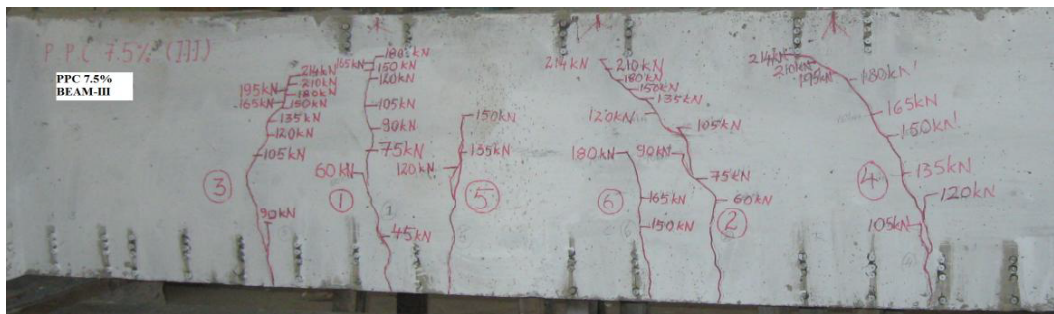 P.P.C 7.5% (III)
PPC 7.5%
BEAM-III
214kN
210kN
195kN
180kN
165kN
150kN
135kN
120kN
105kN
3
90kN
180kN
165kN
150kN
120kN
105kN
90kN
75kN
60kN
1
1
45kN
150kN
135kN
120kN
5
214kN
210kN
180kN
150kN
135kN
120kN
105kN
90kN
75kN
60kN
2
180kN
6
165kN
150kN
214kN
210kN
195kN
180kN
165kN
150kN
135kN
4
120kN
105kN